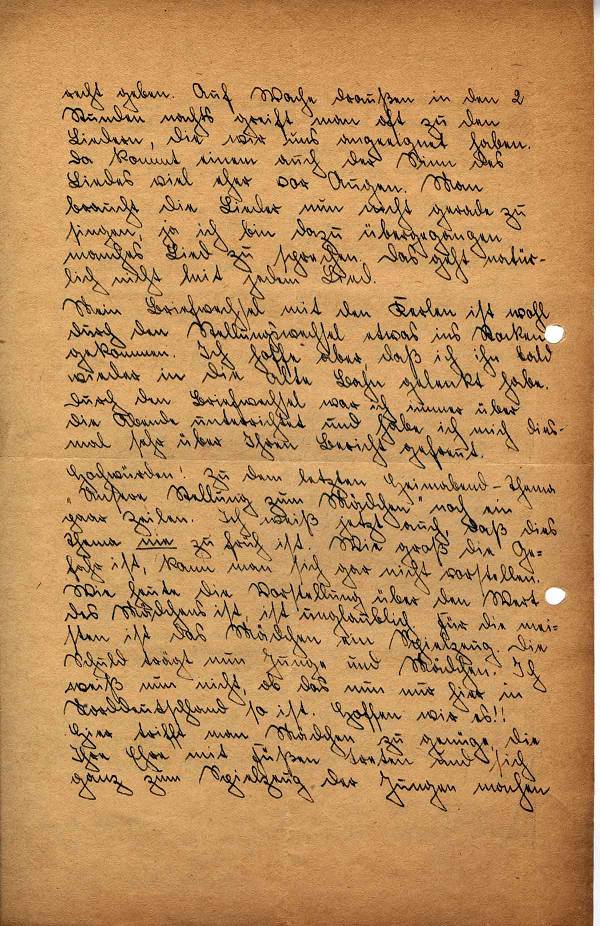 recht geben. Auf Wache draußen in den 2
Stunden nachts greift man oft zu den
Liedern, die wir uns angeeignet haben.
Da kommt einem auch der Sinn des
Liedes viel eher vor Augen. Man
braucht die Lieder nun nicht gerade zu
singen, ja ich bin dazu übergegangen
manches Lied zu sprechen. Das geht natür-
lich nicht mit jedem Lied.
Mein Briefwechsel mit den Kerlen ist wohl
durch den Stellungswechsel etwas ins Stocken
gekommen. Ich hoffe aber, daß ich ihn bald
wieder in die alte Bahn gelenkt habe.
Durch den Briefwechsel war ich immer über
die Abende unterrichtet und habe ich mich dies-
mal sehr über Ihren Bericht gefreut.
Hochwürden! Zu dem letzten Heimabend-Thema
"Unsere Stellung zum Mädchen" noch ein
paar Zeilen. Ich weiß jetzt auch, daß dies
Thema nie zu früh ist. Wie groß die Ge-
fahr ist, kann man sich gar nicht vorstellen.
Wie heute die Vorstellung über den Wert
des Mädchens ist, ist unglaublich. Für die mei-
sten ist das Mädchen ein Spielzeug. Die
Schuld trägt nun Junge und Mädchen. Ich
weiß nun nicht, ob das nun nur hier in
Norddeutschland so ist. Hoffen wir es!!
Hier trifft man Mädchen zu genüge, die
Ihre Ehre mit Füßen treten und sich
ganz zum Spielzeug der Jungen machen